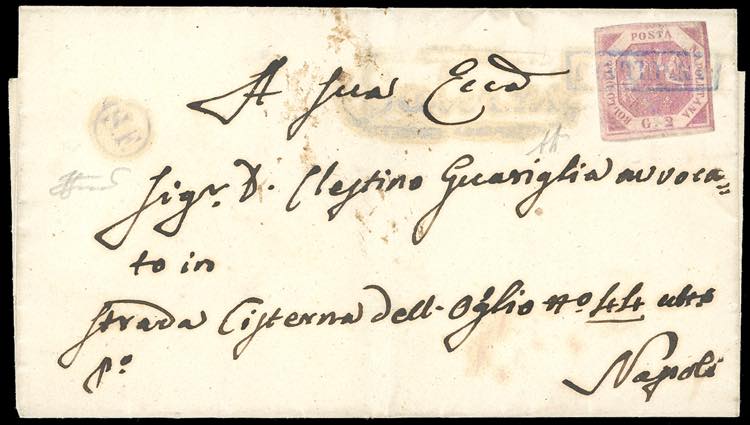 POSTA
NAPOLETANA
BOLLO DELLA
G. 2
A Sua Ecca
Sigr. D. Clestino Guariglia avvoca=
to in
strada Cisterna dell-Oglio No. 44 
Po.
Napoli